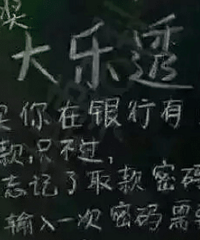 奖
大乐透
你在银行有
款,只不过,
忘记了取款密码
输入一次密码需